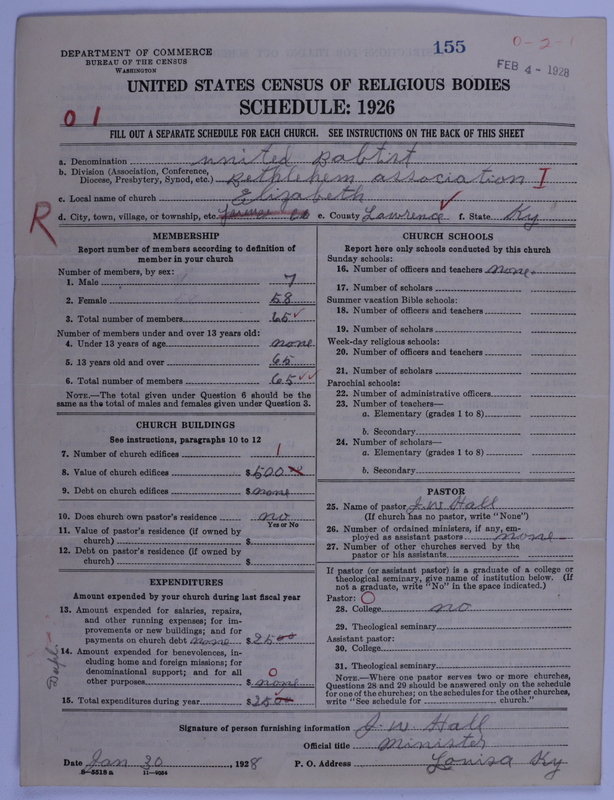 155
0-2-1
FEB 4 - 1928
DEPARTMENT OF COMMERCE
BUREAU OF THE CENSUS
WASHINGTON
UNITED STATES CENSUS OF RELIGIOUS BODIES
SCHEDULE: 1926
0 1
FILL OUT A SEPARATE SCHEDULE FOR EACH CHURCH. SEE INSTRUCTIONS ON THE BACK OF THIS SHEET
a. Denomination United Babtist
b. Division (Association, Conference,
Diocese, Presbytery, Synod, etc.) Bethlehem association I
c. Local name of church Elizabeth
R d. City, town, village, or township, etc. Co e. County Lawrence f. State Ky
MEMBERSHIP
Report number of members according to definition of
member in your church
Number of members, by sex:
1. Male 7
2. Female 58
3. Total number of members 65
Number of members under and over 13 years old:
4. Under 13 years of age none
5. 13 years old and over 65
6. Total number of members 65
NOTE.—The total given under Question 6 should be
the same as the total of males and females given under Question 3.
CHURCH BUILDINGS
See instructions, paragraphs 10 to 12
7. Number of church edifices 1
8. Value of church edifices $500
9. Debt on church edifices $none
10. Does church own pastor's residence no
Yes or No
11. Value of pastor's residence (if owned by
church) $
12. Debt on pastor's residence (if owned by
church) $
EXPENDITURES
Amount expended by your church during last fiscal year
13. Amount expended for salaries, repairs,
and other running expenses; for im-
provements or new buildings; and for
payments on church debt none $25 00
14. Amount expended for benevolences, in-
cluding home and foreign missions; for
denominational support; and for all
other purposes 0 $none
15. Total expenditures during year $25 00
CHURCH SCHOOLS
Report here only schools conducted by this church
Sunday schools:
16. Number of officers and teachers none
17. Number of scholars
Summer vacation Bible schools:
18. Number of officers and teachers
19. Number of scholars
Week-day religious schools:
20. Number of officers and teachers
21. Number of scholars
Parochial schools:
22. Number of administrative officers
23. Number of teachers—
a. Elementary (grades 1 to 8)
b. Secondary
24. Number of scholars—
a. Elementary (grades 1 to 8)
b. Secondary
PASTOR
25. Name of pastor J. W. Hall
(If church has no pastor, write "None")
26. Number of ordained ministers, if any, em-
ployed as assistant pastors none
27. Number of other churches served by the
pastor or his assistants
If pastor (or assistant pastor) is a graduate of a college or
theological seminary, give name of institution below. (If
not a graduate, write "No" in the space indicated.)
Pastor: 0
28. College no
29. Theological seminary
Assistant pastor:
30. College
31. Theological seminary
NOTE.—Where one pastor serves two or more churches,
Questions 28 and 29 should be answered only on the schedule
for one of the churches; on the schedules for the other churches,
write "See schedule for church."
Signature of person furnishing information J. W. Hall
Official title Minister
Date Jan 30, 1928 P. O. Address Louisa Ky
8—5518 a 11—9064